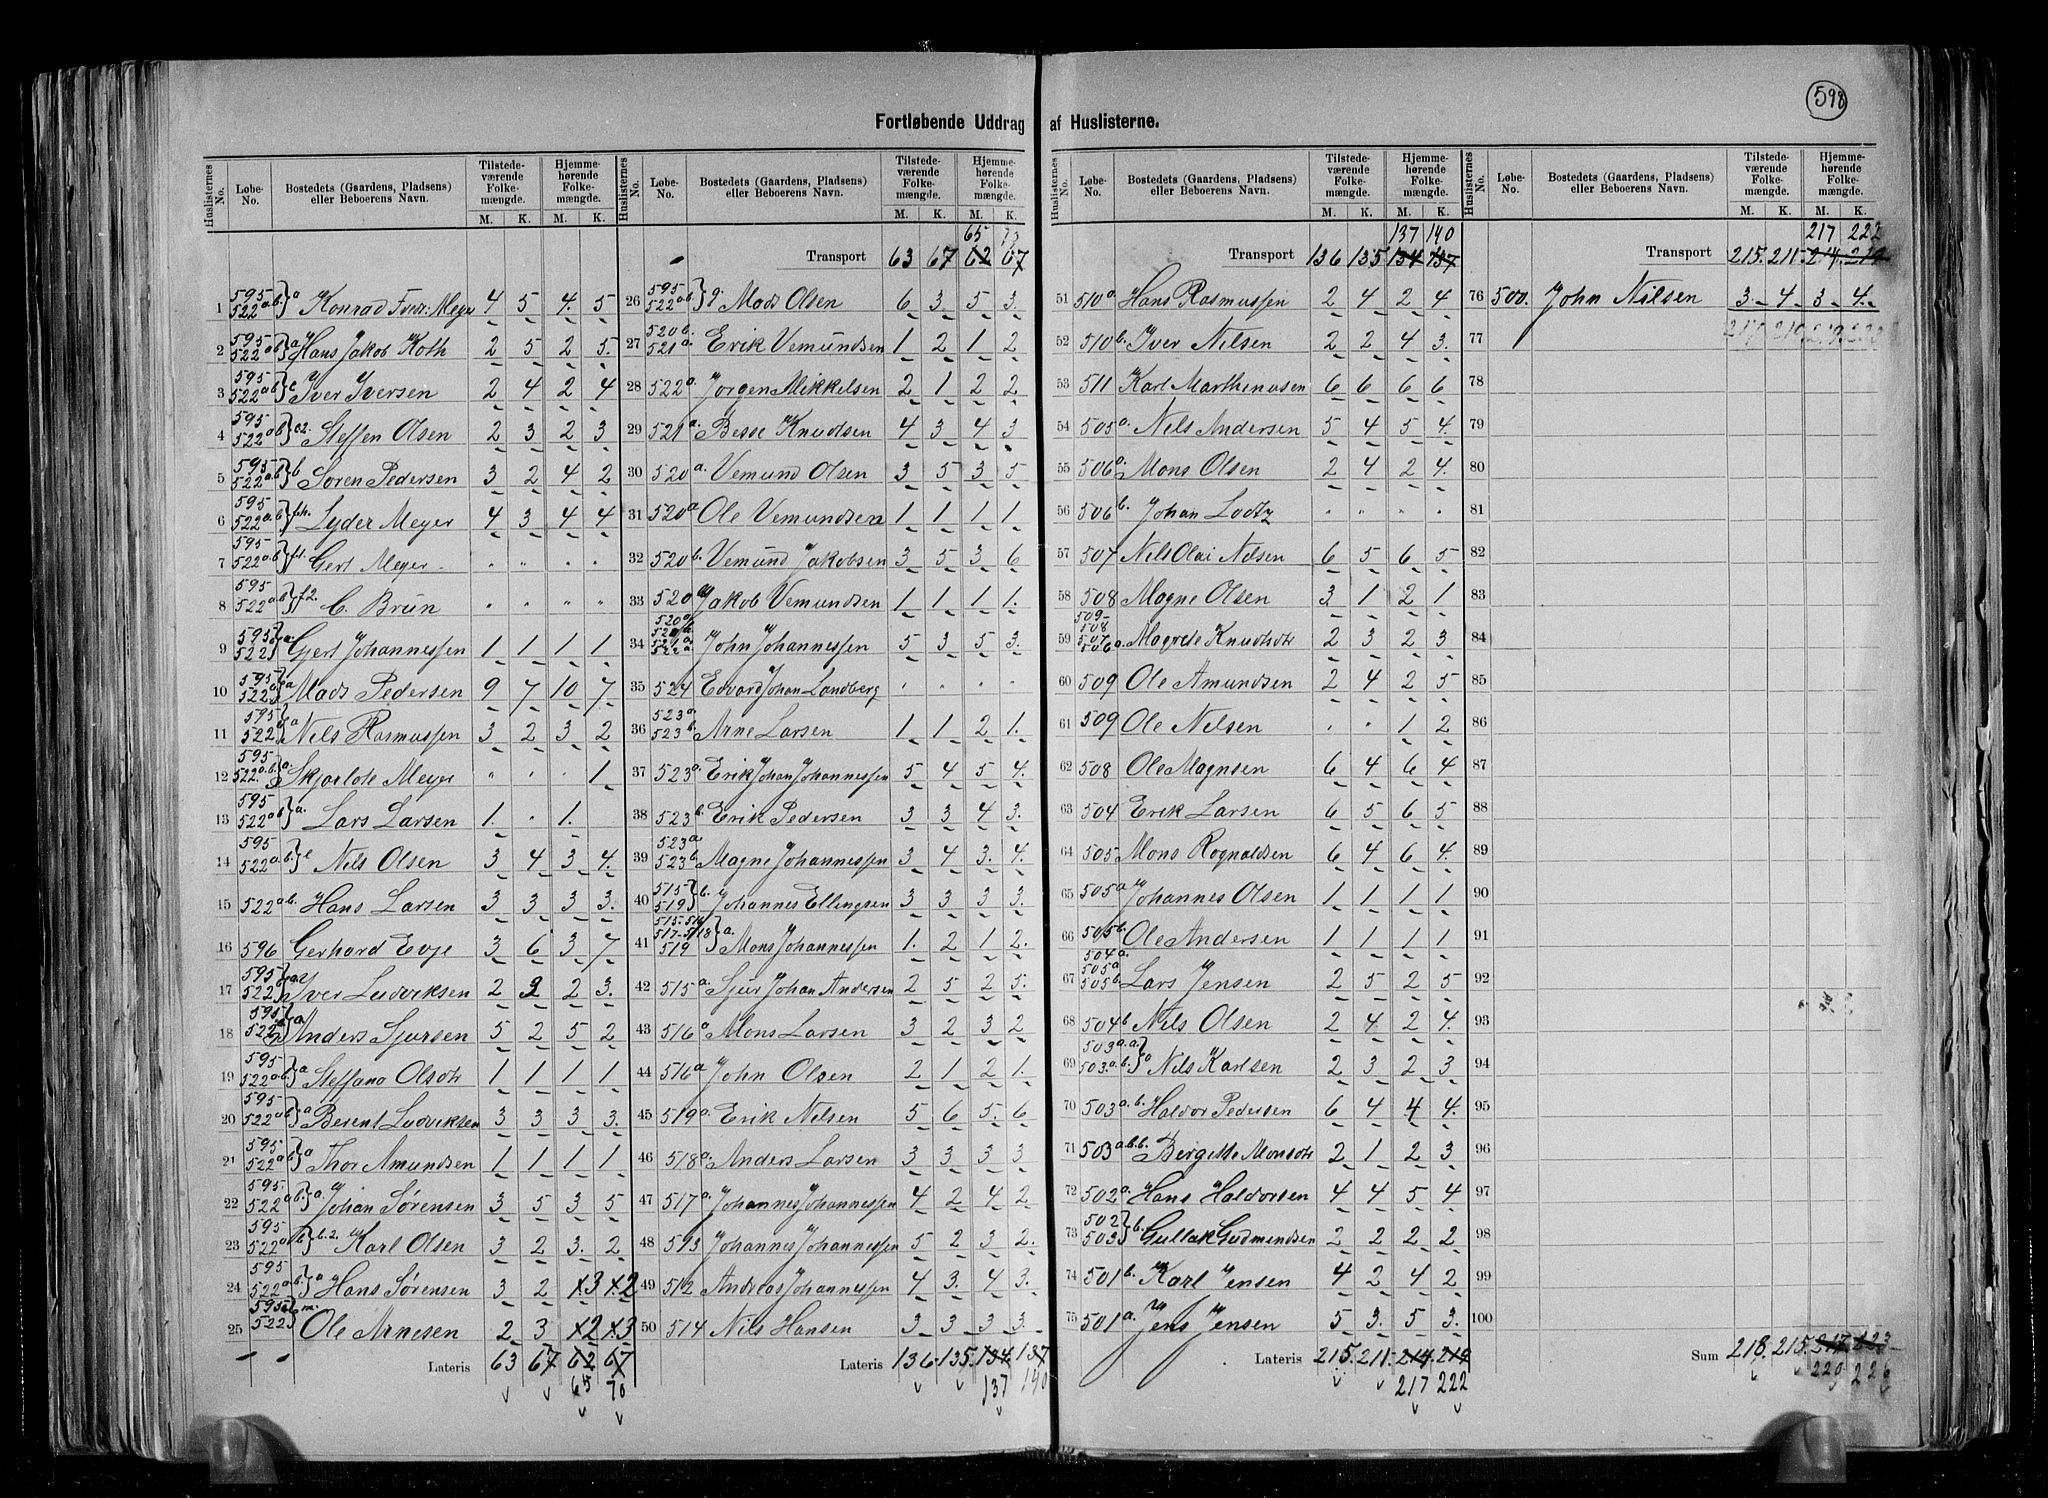 598
Fortløbende Uddrag af Huslisterne.
Huslisternes No. Løbe-No. Bostedets (Gaardens, Pladsens) eller Beboerens Navn. Tilstedeværende Folkemængde. M. K. Hjemmehørende Folkemængde. M. K.
1 595 522 a.b. } a Konrad Fredr: Meyer 4 5 4 5
2 595 522 a b } a Hans Jakob Roth 2 5 2 5.
3 595 522 a b } c Iver Iversen 2 4 2 4
4 595 522 a b } c2. Steffen Olsen 2 3 2 3
5 595 522 a b } b Søren Pedersen 3 2 4 2
6 595 522 a.b. } f.h. Lyder Meyer 4 3 4 4
7 595 522 a.b } f1. Gert Meyer " " " "
8 595 522 a b } f2. C. Brun " " " "
9 595 522 } a Gjert Johannessen 1 1 1 1
10 595 522 } a Mads Pedersen 9 7 10 7
11 595 522 } a Nils Rasmussen 3 2 3 2
12 595 522 a.b. } a. Skjoldte Meyer " " " 1
13 595 522 a b } a. Lars Larsen 1. " 1.
14 595 522 a.b. } e Nils Olsen 3 4 3 4.
15 522 a b. Hans Larsen 3 3 3 3.
16 596 Gerhard Evje 3 6 3 7
17 595 522 } a Iver Ludviksen 2 3 2 3.
18 595 522 } a Anders Sjursen 5 2 5 2
19 595 522 a b } a Steffana Olsdtr 1 1 1 1
20 595 522 a b } a Berent Ludviksen 3 3 3 3.
21 595 522 a b } a Thor Amundsen 1 1 1 1
22 595 522 a b. } a. Johan Sørensen 3 5 3 5
23 595 522 a b } b.2. Karl Olsen 3 2 3. 2
24 595 522 a.b. } a Hans Sørensen 3 2 x3 x2
25 595 522 } m. Ole Arnesen 2 3 x2 x3
Lateris 63 67 62 67
65 70
Huslisternes No. Løbe-No. Bostedets (Gaardens, Pladsens) eller Beboerens Navn. Tilstedeværende Folkemængde. M. K. Hjemmehørende Folkemængde. M. K.
65 70
Transport 63 67 62 67
26 595 522 a b } g. Mads Olsen 6 3 5 3.
27 520 b. 521 a. Erik Vemundsen 1 2 1 2
28 522 a. Jørgen Mikkelsen 2 1 2 2
29 521 a. Besse Knudsen 4 3 4 3
30 520 a. Vemund Olsen 3 5 3 5
31 520 a Ole Vemundsen 1 1 1 1
32 520 b. Vemund Jakobsen 3 5 3 6
33 520 a Jakob Vemundsen 1 1 1 1.
34 520 a 520 b 521 a 522 a. John Johannessen 5 3 5 3.
35 524 Edvard Johan Landberg " " " "
36 523 a. 523 b. Arne Larsen 1 1 2 1.
37 523 a. Erik Johan Johannessen 5 4 5 4.
38 523 b. Erik Pedersen 3 3 4 3.
39 523 a 523 b Magne Johannessen 3 4 3. 4.
40 515 519 } b. Johannes Ellingsen 3 3 3 3.
41 515-516 517-518 519 } a. Mons Johannessen 1. 2 1 2.
42 515 a. Sjur Johan Andersen 2 5 2 5.
43 516 a Mons Larsen 3 2 3 2
44 516 a John Olsen 2 1 2 1.
45 519 a. Erik Nilsen 5 6 5. 6
46 518 a. Anders Larsen 3 3 3 3
47 517 a. Johannes Johannessen 4 2 4 2.
48 513 Johannes Johannessen 5 2 3 2.
49 512 Andreas Johannessen 4 3. 4 3.
50 514 Nils Hansen 3 3 3 3.
Lateris 136 135. 134. 137
137 140
Huslisternes No. Løbe-No. Bostedets (Gaardens, Pladsens) eller Beboerens Navn. Tilstedeværende Folkemængde. M. K. Hjemmehørende Folkemængde. M. K.
137 140
Transport 136 135 134 137
51 510 a. Hans Rasmussen 2 4 2 4
52 510 b. Iver Nilsen 2 2 4 3.
53 511 Karl Marthinusen 6 6 6 6
54 505 a. Nils Andersen 5 4 5 4.
55 506 a. Mons Olsen 2 4 2 4.
56 506 b. Johan Lootz " " " "
57 507 Nils Olai Nilsen 6 5 6 5
58 508 Magne Olsen 3 1 2 1
59 509- 508 507 506 a. Magrete Knudsdtr 2 3 2 3
60 509 Ole Amundsen 2 4 2 5
61 509 Ole Nilsen " " 1 2
62 508 Ole Magnsen 6 4 6 4
63 504 Erik Larsen 6 5 6 5
64 505 Mons Rognaldsen 6 4 6 4.
65 505 a Johannes Olsen 1 1 1 1
66 505 b. Ole Andersen 1 1 1 1
67 504 a. 505 a 505 b Lars Jensen 2 5 2 5
68 504 b Nils Olsen 2 4 2 4.
69 503 a.a. 503 a.b. } a Nils Karlsen 2 3 2 3
70 503 a. b. Haldor Pedersen 6 4 4 4.
71 503 a.b.b. Birgitte Monsdtr 2 1 2 3
72 502 a. Hans Haldorsen 4 4 5 4
73 502 503 } b. Gullak Gudmundsen 2 2 2 2
74 501 b. Karl Jensen 4 2 4 2
75 501 a. Jens Jensen 5 3. 5 3.
Lateris 215. 211. 214 219
217 222
Huslisternes No. Løbe-No. Bostedets (Gaardens, Pladsens) eller Beboerens Navn. Tilstedeværende Folkemængde. M. K. Hjemmehørende Folkemængde. M. K.
217 222
Transport 215. 211. 214. 219
76 500. John Nilsen 3. 4. 3. 4.
77
78
79
80
81
82
83
84
85
86
87
88
89
90
91
92
93
94
95
96
97
98
99
100
Sum 218. 215. 217. 223
220 226